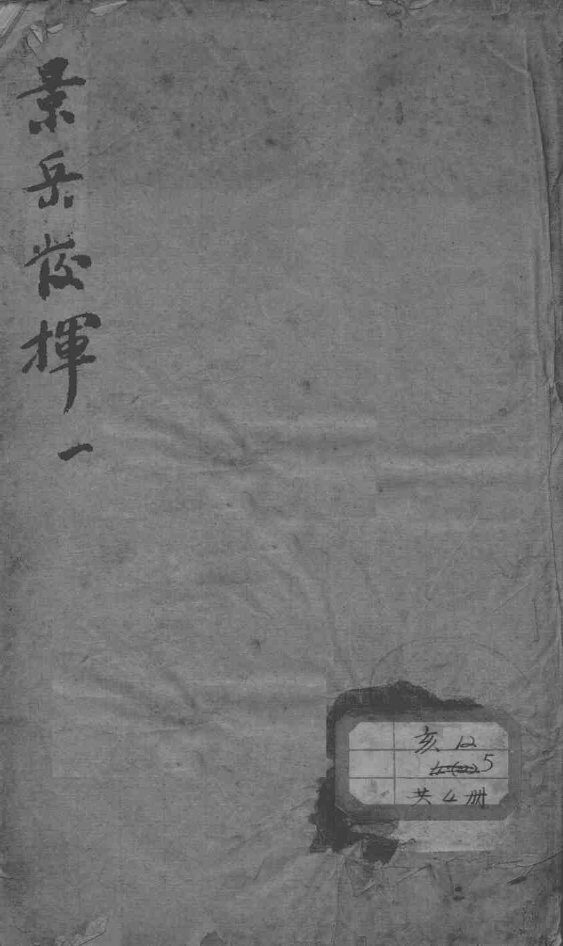 景岳發揮
一
亥 12
5
共4册